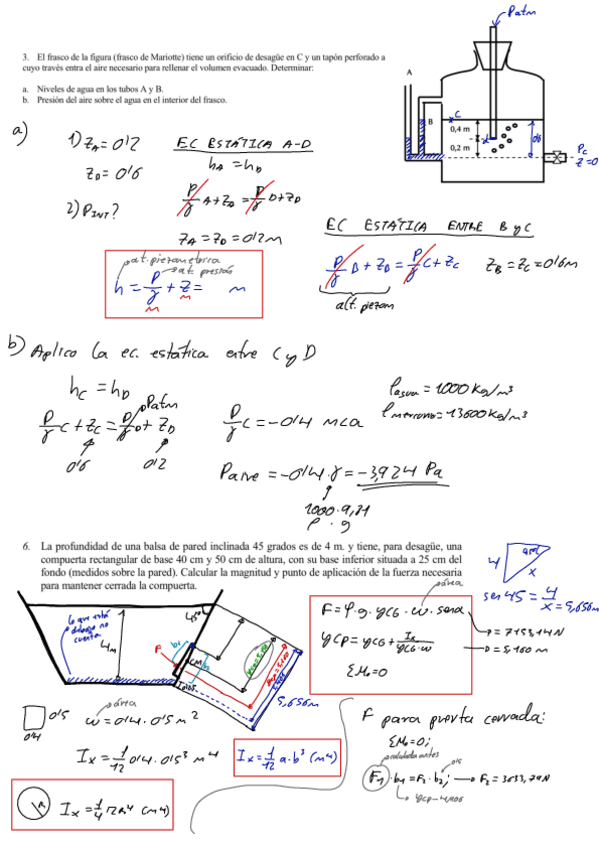 Patm
3. El frasco de la figura (frasco de Mariotte) tiene un orificio de desagüe en C y un tapón perforado a
cuyo través entra el aire necesario para rellenar el volumen evacuado. Determinar:
a. Niveles de agua en los tubos A y B.
b. Presión del aire sobre el agua en el interior del frasco.
A
B
C
0,4 m
0,2 m
0'6
Pc
z=0
a)
1) ZA = 0'2
ZD = 0'6
2) PINT?
EC ESTÁTICA A-D
hA = hD
P/γ A + ZA = P/γ D + ZD
ZA = ZD = 0'2 m
alt. piezometrica
alt. presión
h = P/γ + z = m
m m
EC ESTÁTICA ENTRE B y C
P/γ B + ZB = P/γ C + ZC
ZB = ZC = 0'6 m
alt. piezom
b) Aplico la ec. estática entre C y D
hC = hD
Patm
P/γ C + ZC = P/γ D + ZD
0'6 0'2
P/γ C = -0'4 mca
ρagua = 1000 kg/m³
ρmercurio = 13600 kg/m³
Paire = -0'4 · γ = -3,924 Pa
1000 · 9,81
ρ · g
6. La profundidad de una balsa de pared inclinada 45 grados es de 4 m. y tiene, para desagüe, una
compuerta rectangular de base 40 cm y 50 cm de altura, con su base inferior situada a 25 cm del
fondo (medidos sobre la pared). Calcular la magnitud y punto de aplicación de la fuerza necesaria
para mantener cerrada la compuerta.
45º
4
x
sen 45 = 4/x = 5,656 m
lo que está debajo no cuenta
4m
45º
F
b1
CM
5,656m
área
F = ρ·g·yCG·w·senα
yCP = yCG + Ix/(yCG·w)
ΣMo=0
= 5,160 m
área
0'5
0'4
w = 0'4 · 0'5 m²
Ix = 1/12 0'4 · 0'5³ m⁴
Ix = 1/12 a·b³ (m⁴)
R
Ix = 1/4 πR⁴ (m⁴)
F para puerta cerrada:
ΣMo=0;
calculada antes
0'5
F1 · b1 = F2 · b2;